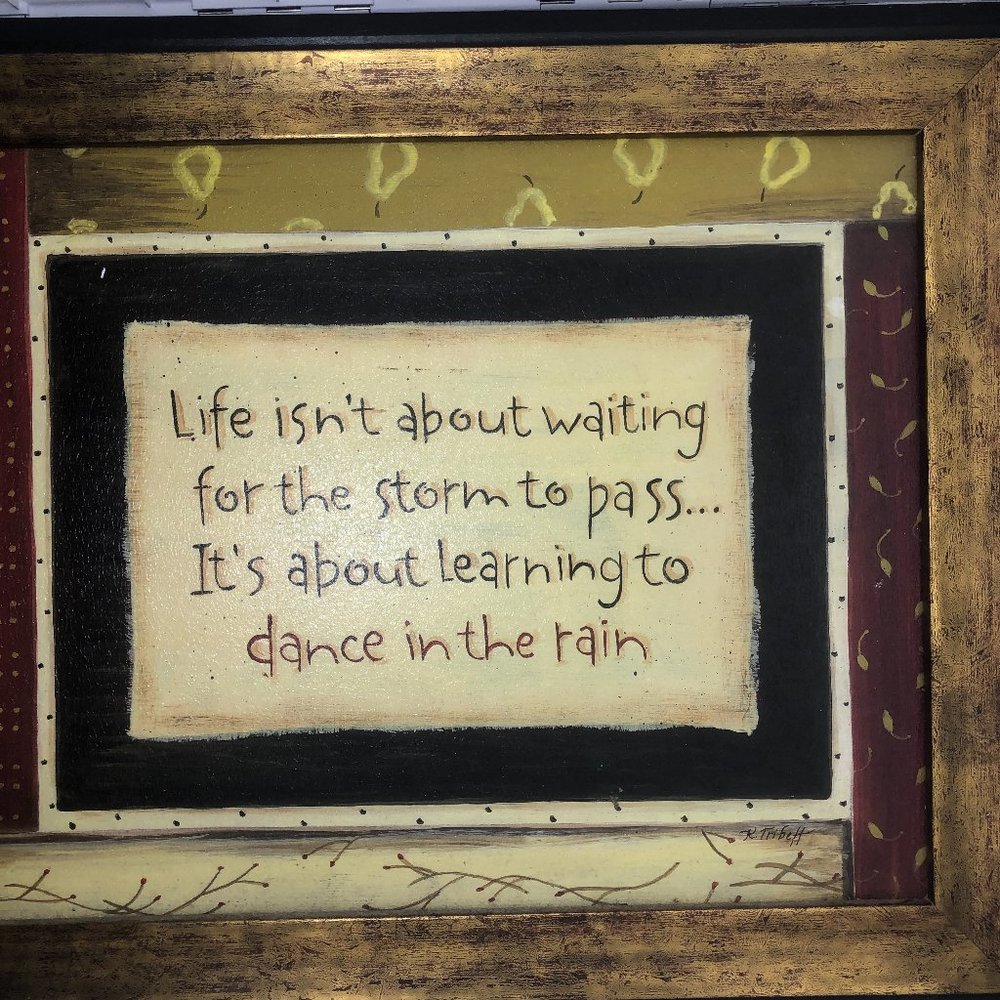 Life isn't about waiting
for the storm to pass...
It's about learning to
dance in the rain
K. Tribett